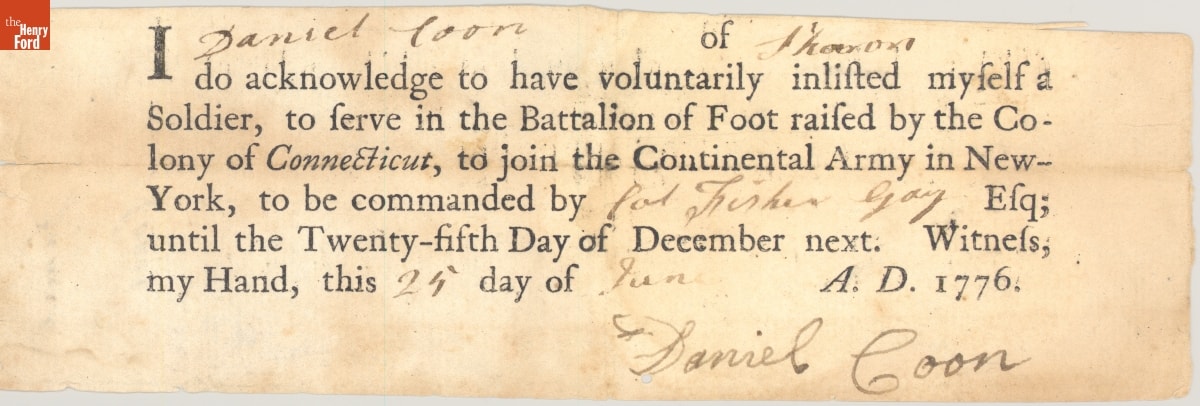 the
Henry
Ford
I Daniel Coon of Sharon
do acknowledge to have voluntarily inliſted myſelf a
Soldier, to ſerve in the Battalion of Foot raiſed by the Co-
lony of Connecticut, to join the Continental Army in New-
York, to be commanded by Col Fisher Gay Eſq;
until the Twenty-fifth Day of December next. Witneſs,
my Hand, this 25 day of June A. D. 1776.
Daniel Coon